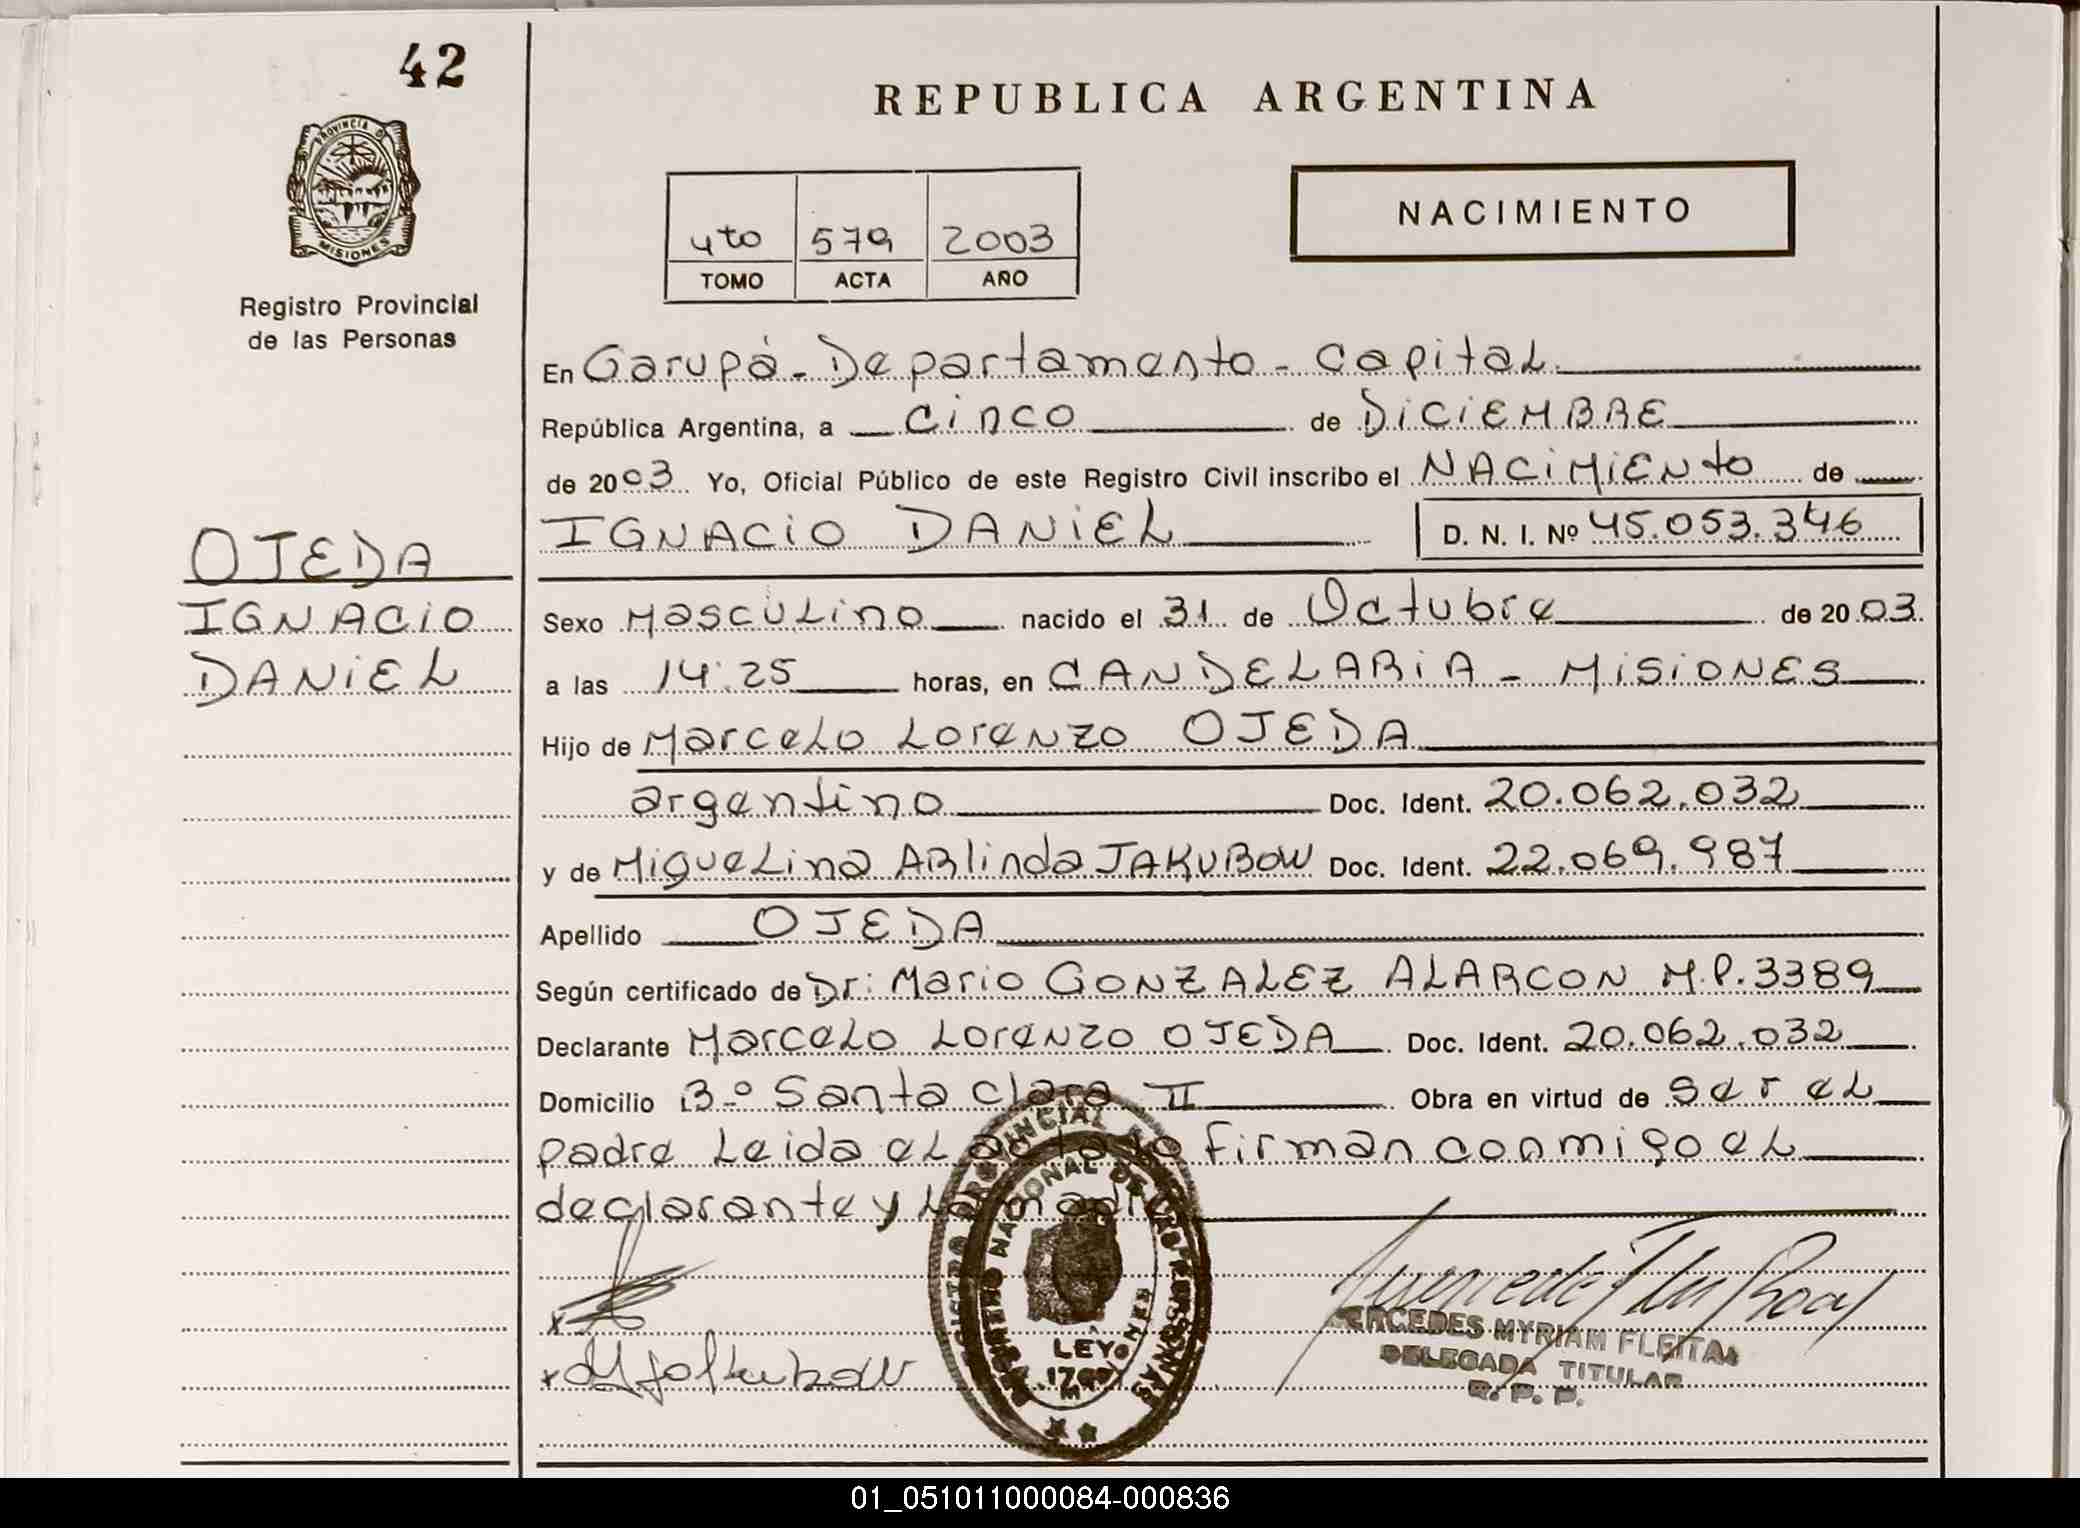 42
REPUBLICA ARGENTINA
PROVINCIA D
MISIONES
Registro Provincial
de las Personas
NACIMIENTO
4to 579 2003
TOMO ACTA AÑO
En Garupá - Departamento - Capital
República Argentina, a cinco de DICIEMBRE
de 2003 Yo, Oficial Público de este Registro Civil inscribo el NACIMIENto de
IGNACIO DANIEL D. N. I. Nº 45.053.346
OJEDA
IGNACIO
DANIEL
Sexo Masculino nacido el 31 de Octubre de 2003
a las 14:25 horas, en CANDELARIA - MISIONES
Hijo de Marcelo Lorenzo OJEDA
argentino Doc. Ident. 20.062.032
y de Miguelina ARlinda JAKUBOW Doc. Ident. 22.069.987
Apellido OJEDA
Según certificado de Dr: Mario GONZALEZ ALARCON M.P. 3389
Declarante Marcelo Lorenzo OJEDA Doc. Ident. 20.062.032
Domicilio Bº Santa Clara II Obra en virtud de ser el
padre Leida el firman conmigo el
declarante y la madre
REGISTRO PROVINCIAL
REGISTRO NACIONAL DE LAS PERSONAS
LEY
x
x Jakubow
MERCEDES MYRIAM FLEITAS
DELEGADA TITULAR
R. P. P.
01_051011000084-000836